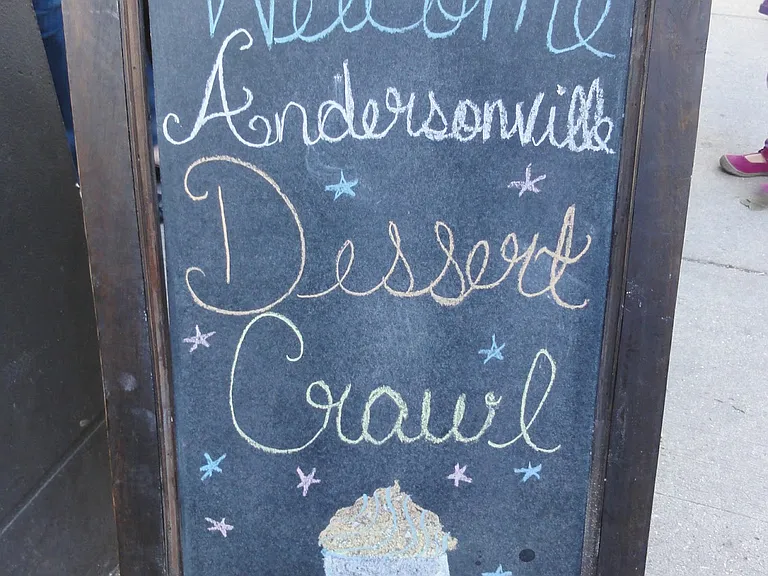 Welcome
Andersonville
Dessert
Crawl